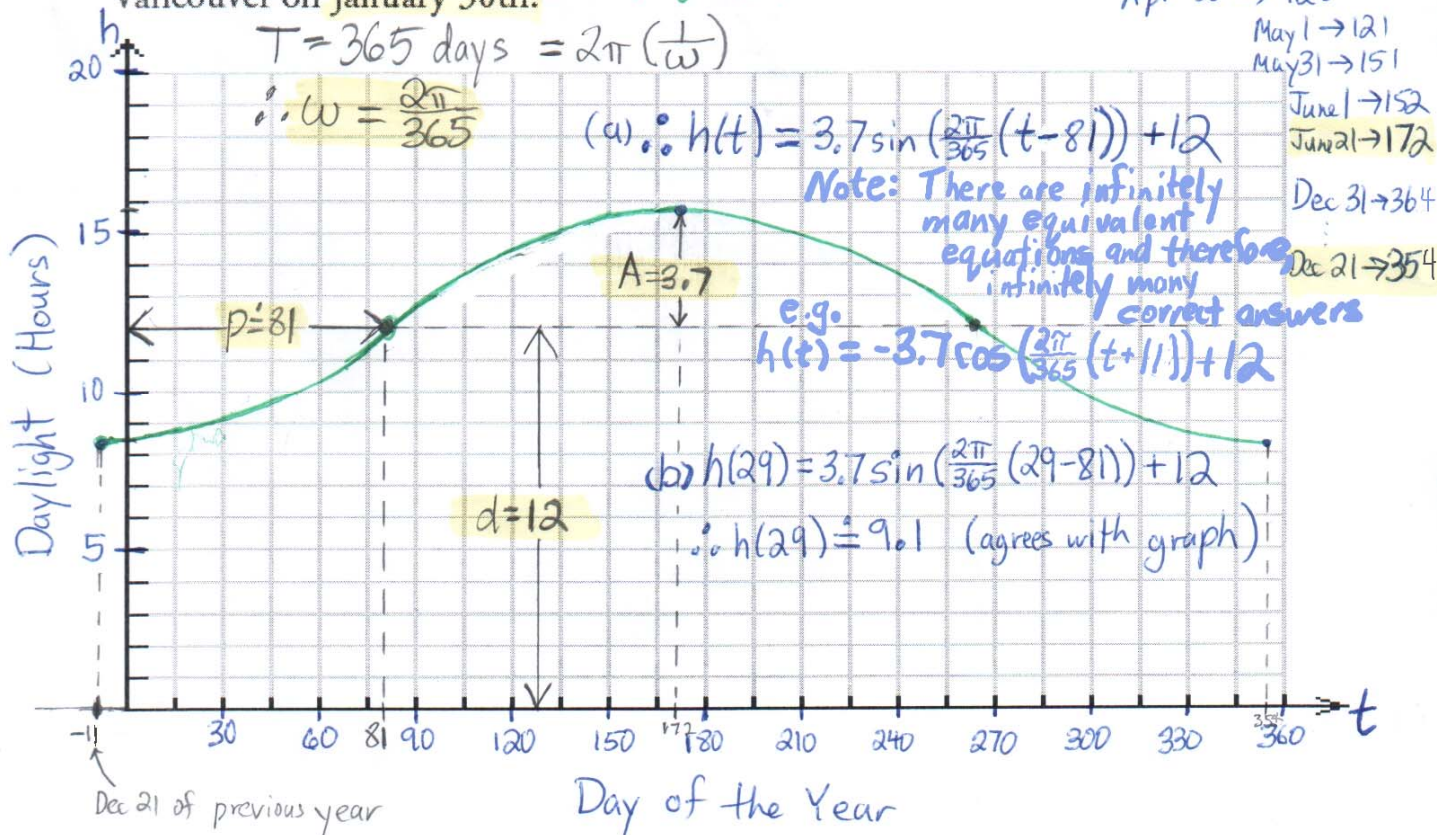 Vancouver on January 30th.
h
T = 365 days = 2π (1/ω)
∴ ω = 2π/365
May 1 → 121
May 31 → 151
June 1 → 152
June 21 → 172
Dec 31 → 364
⋮
Dec 21 → 354
(a) ∴ h(t) = 3.7 sin (2π/365 (t-81)) + 12
Note: There are infinitely
many equivalent
equations and therefore
infinitely many
correct answers
e.g.
h(t) = -3.7 cos (2π/365 (t+11)) + 12
A = 3.7
p ≐ 81
d = 12
(b) h(29) = 3.7 sin (2π/365 (29-81)) + 12
∴ h(29) ≐ 9.1 (agrees with graph)
Daylight (Hours)
20
15
10
5
-11 30 60 81 90 120 150 172 180 210 240 270 300 330 354 360
t
Dec 21 of previous year
Day of the Year